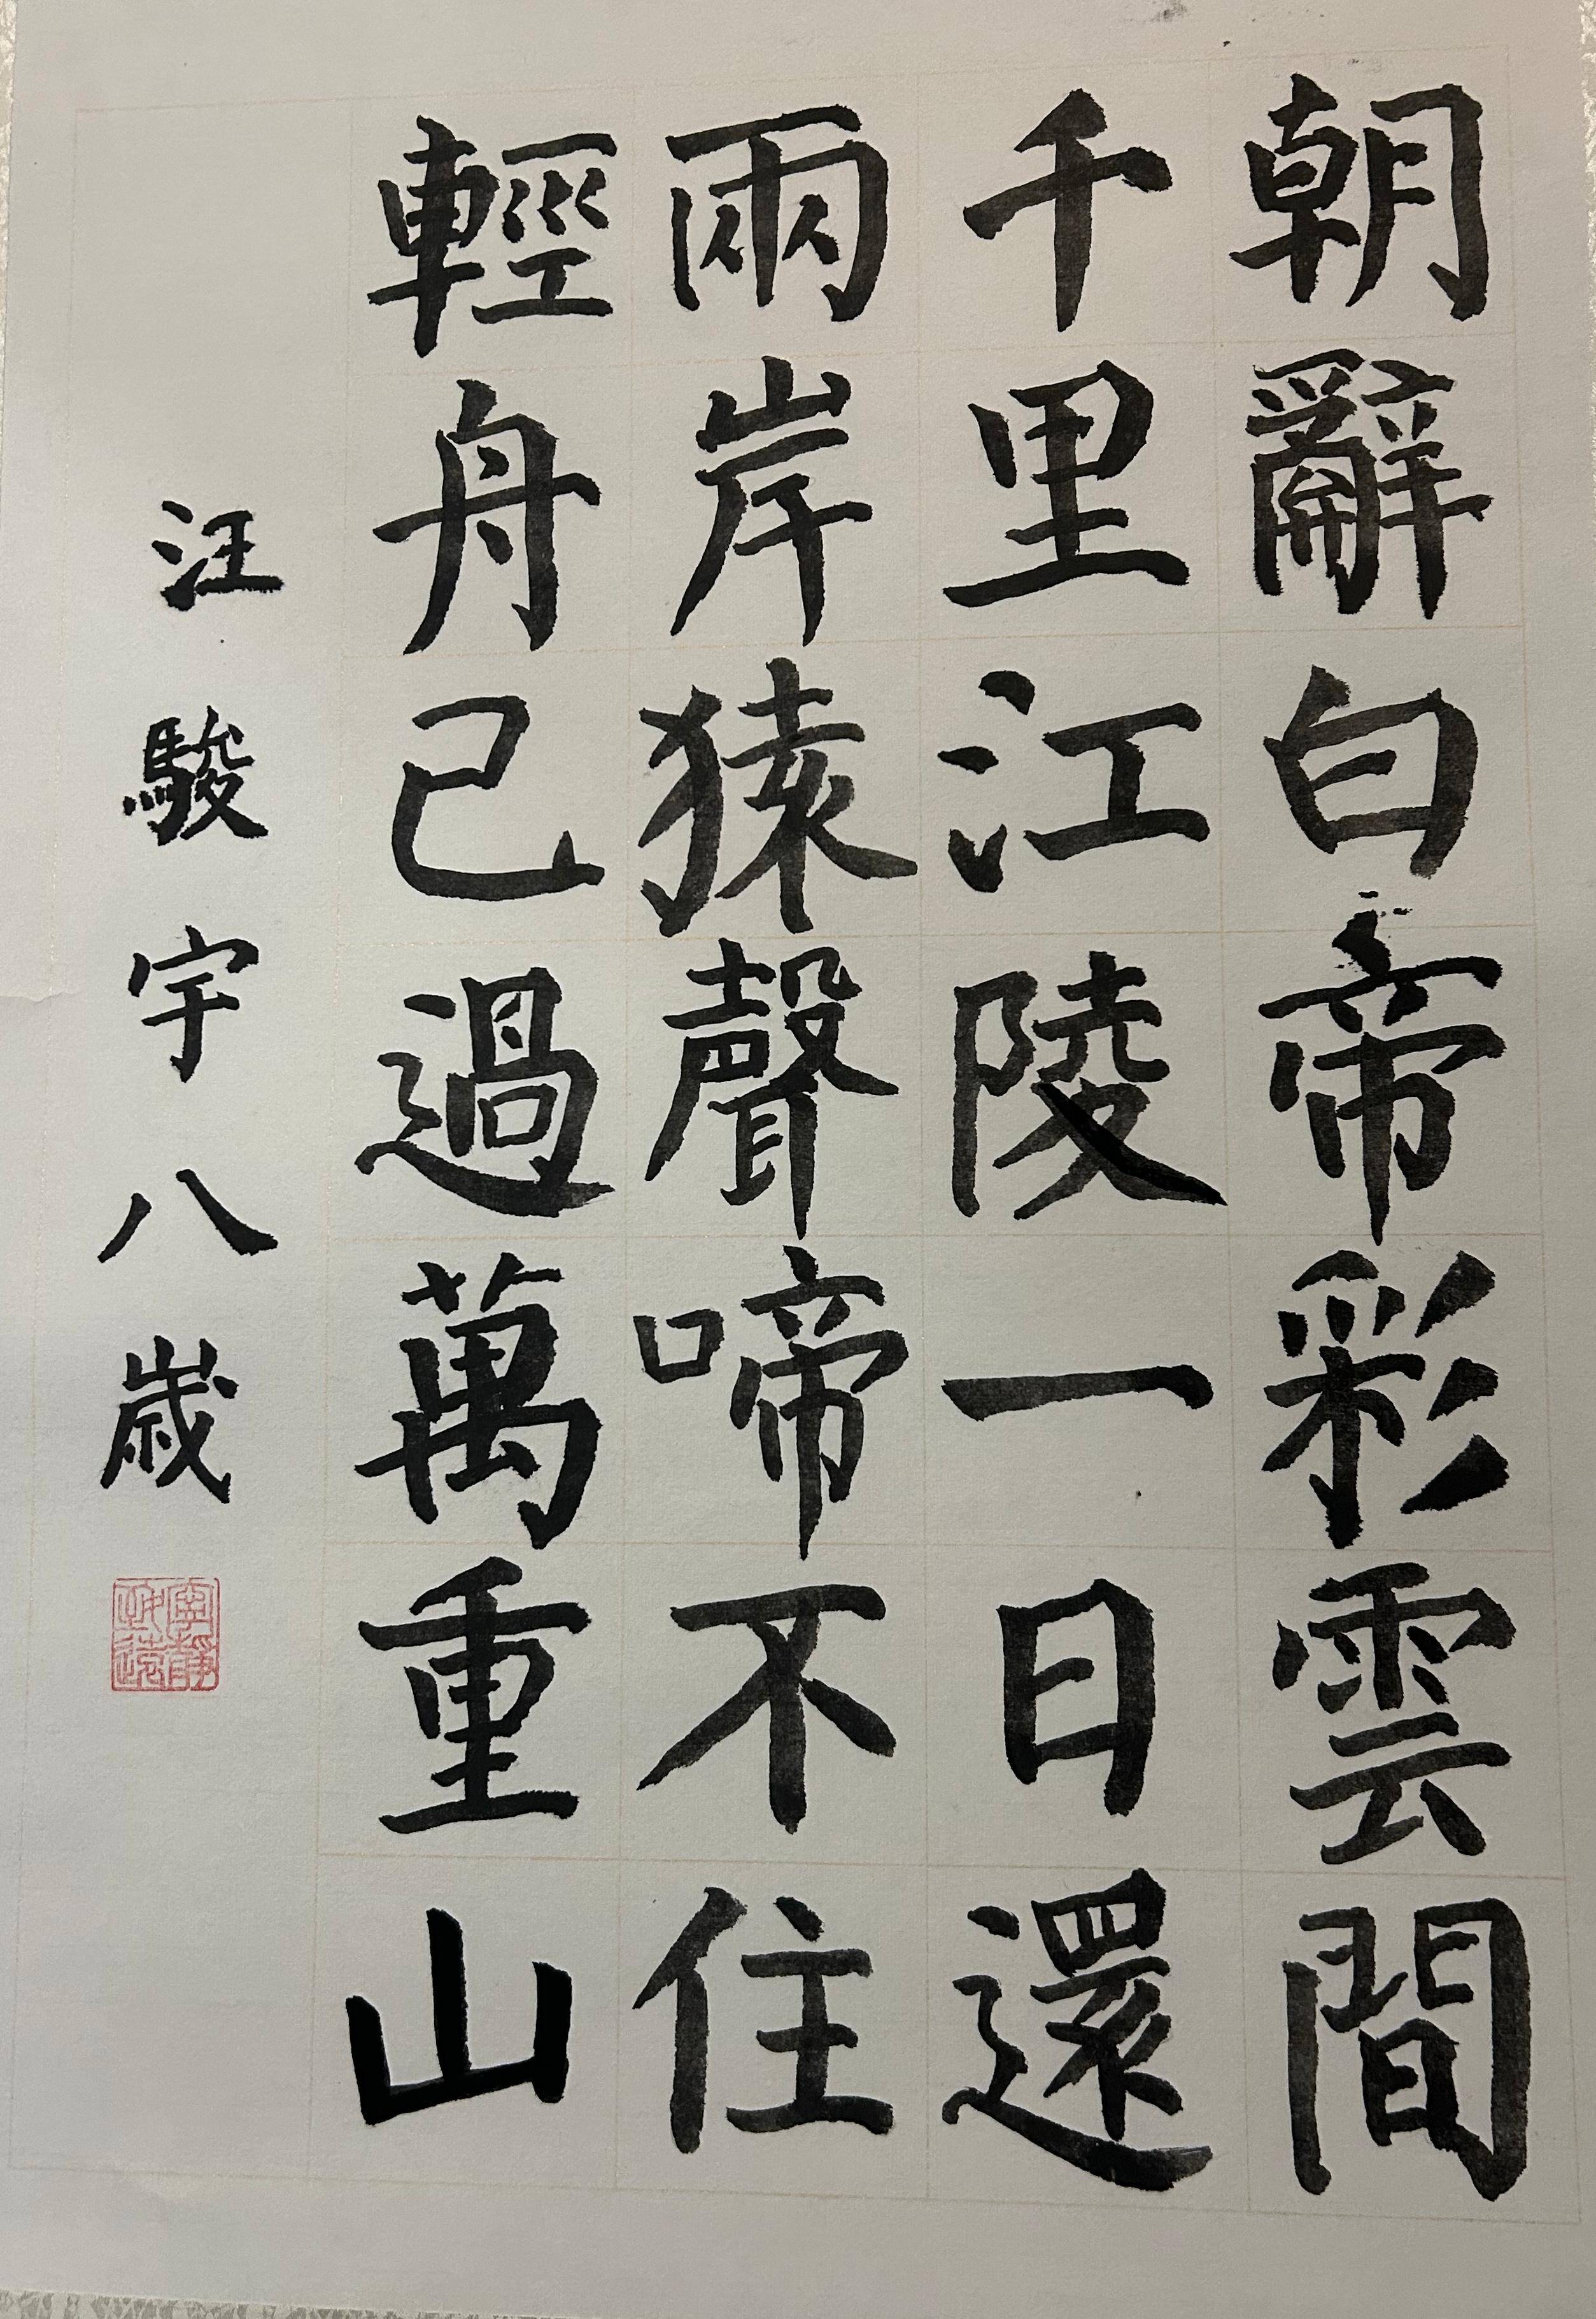 朝辭白帝彩雲間
千里江陵一日還
兩岸猿聲啼不住
輕舟已過萬重山
汪駿宇八歲
寧靜致遠